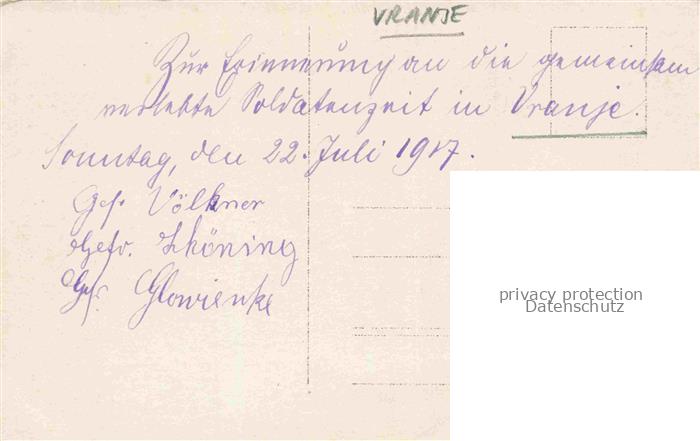 VRANJE
Zur Erinnerung an die gemeinsam
verlebte Soldatenzeit in Vranje.
Sonntag, den 22. Juli 1917.
Gef. Völkner
Gefr. Schöning
Gef. Glowienke
privacy protection
Datenschutz